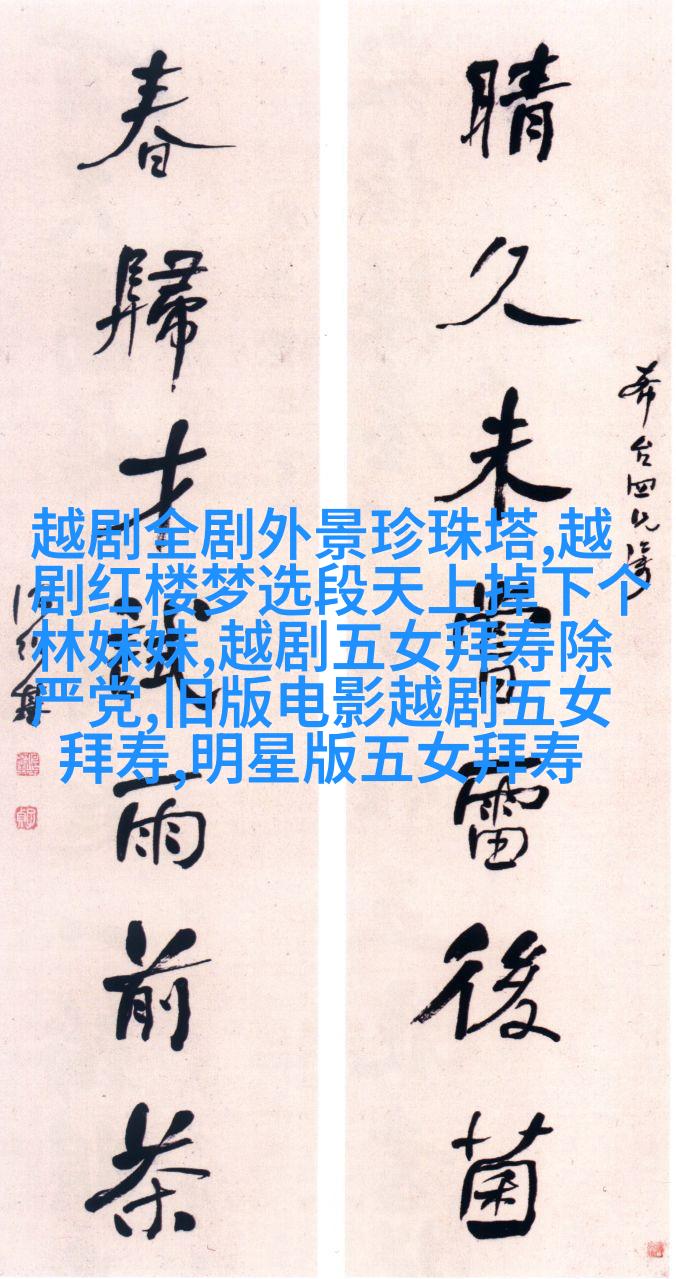 晴久未嘗雷後菌
春歸才試雨前茶
越剧全剧外景珍珠塔,越
剧红楼梦选段天上掉下个
林妹妹,越剧五女拜寿除
严党,旧版电影越剧五女
拜寿,明星版五女拜寿